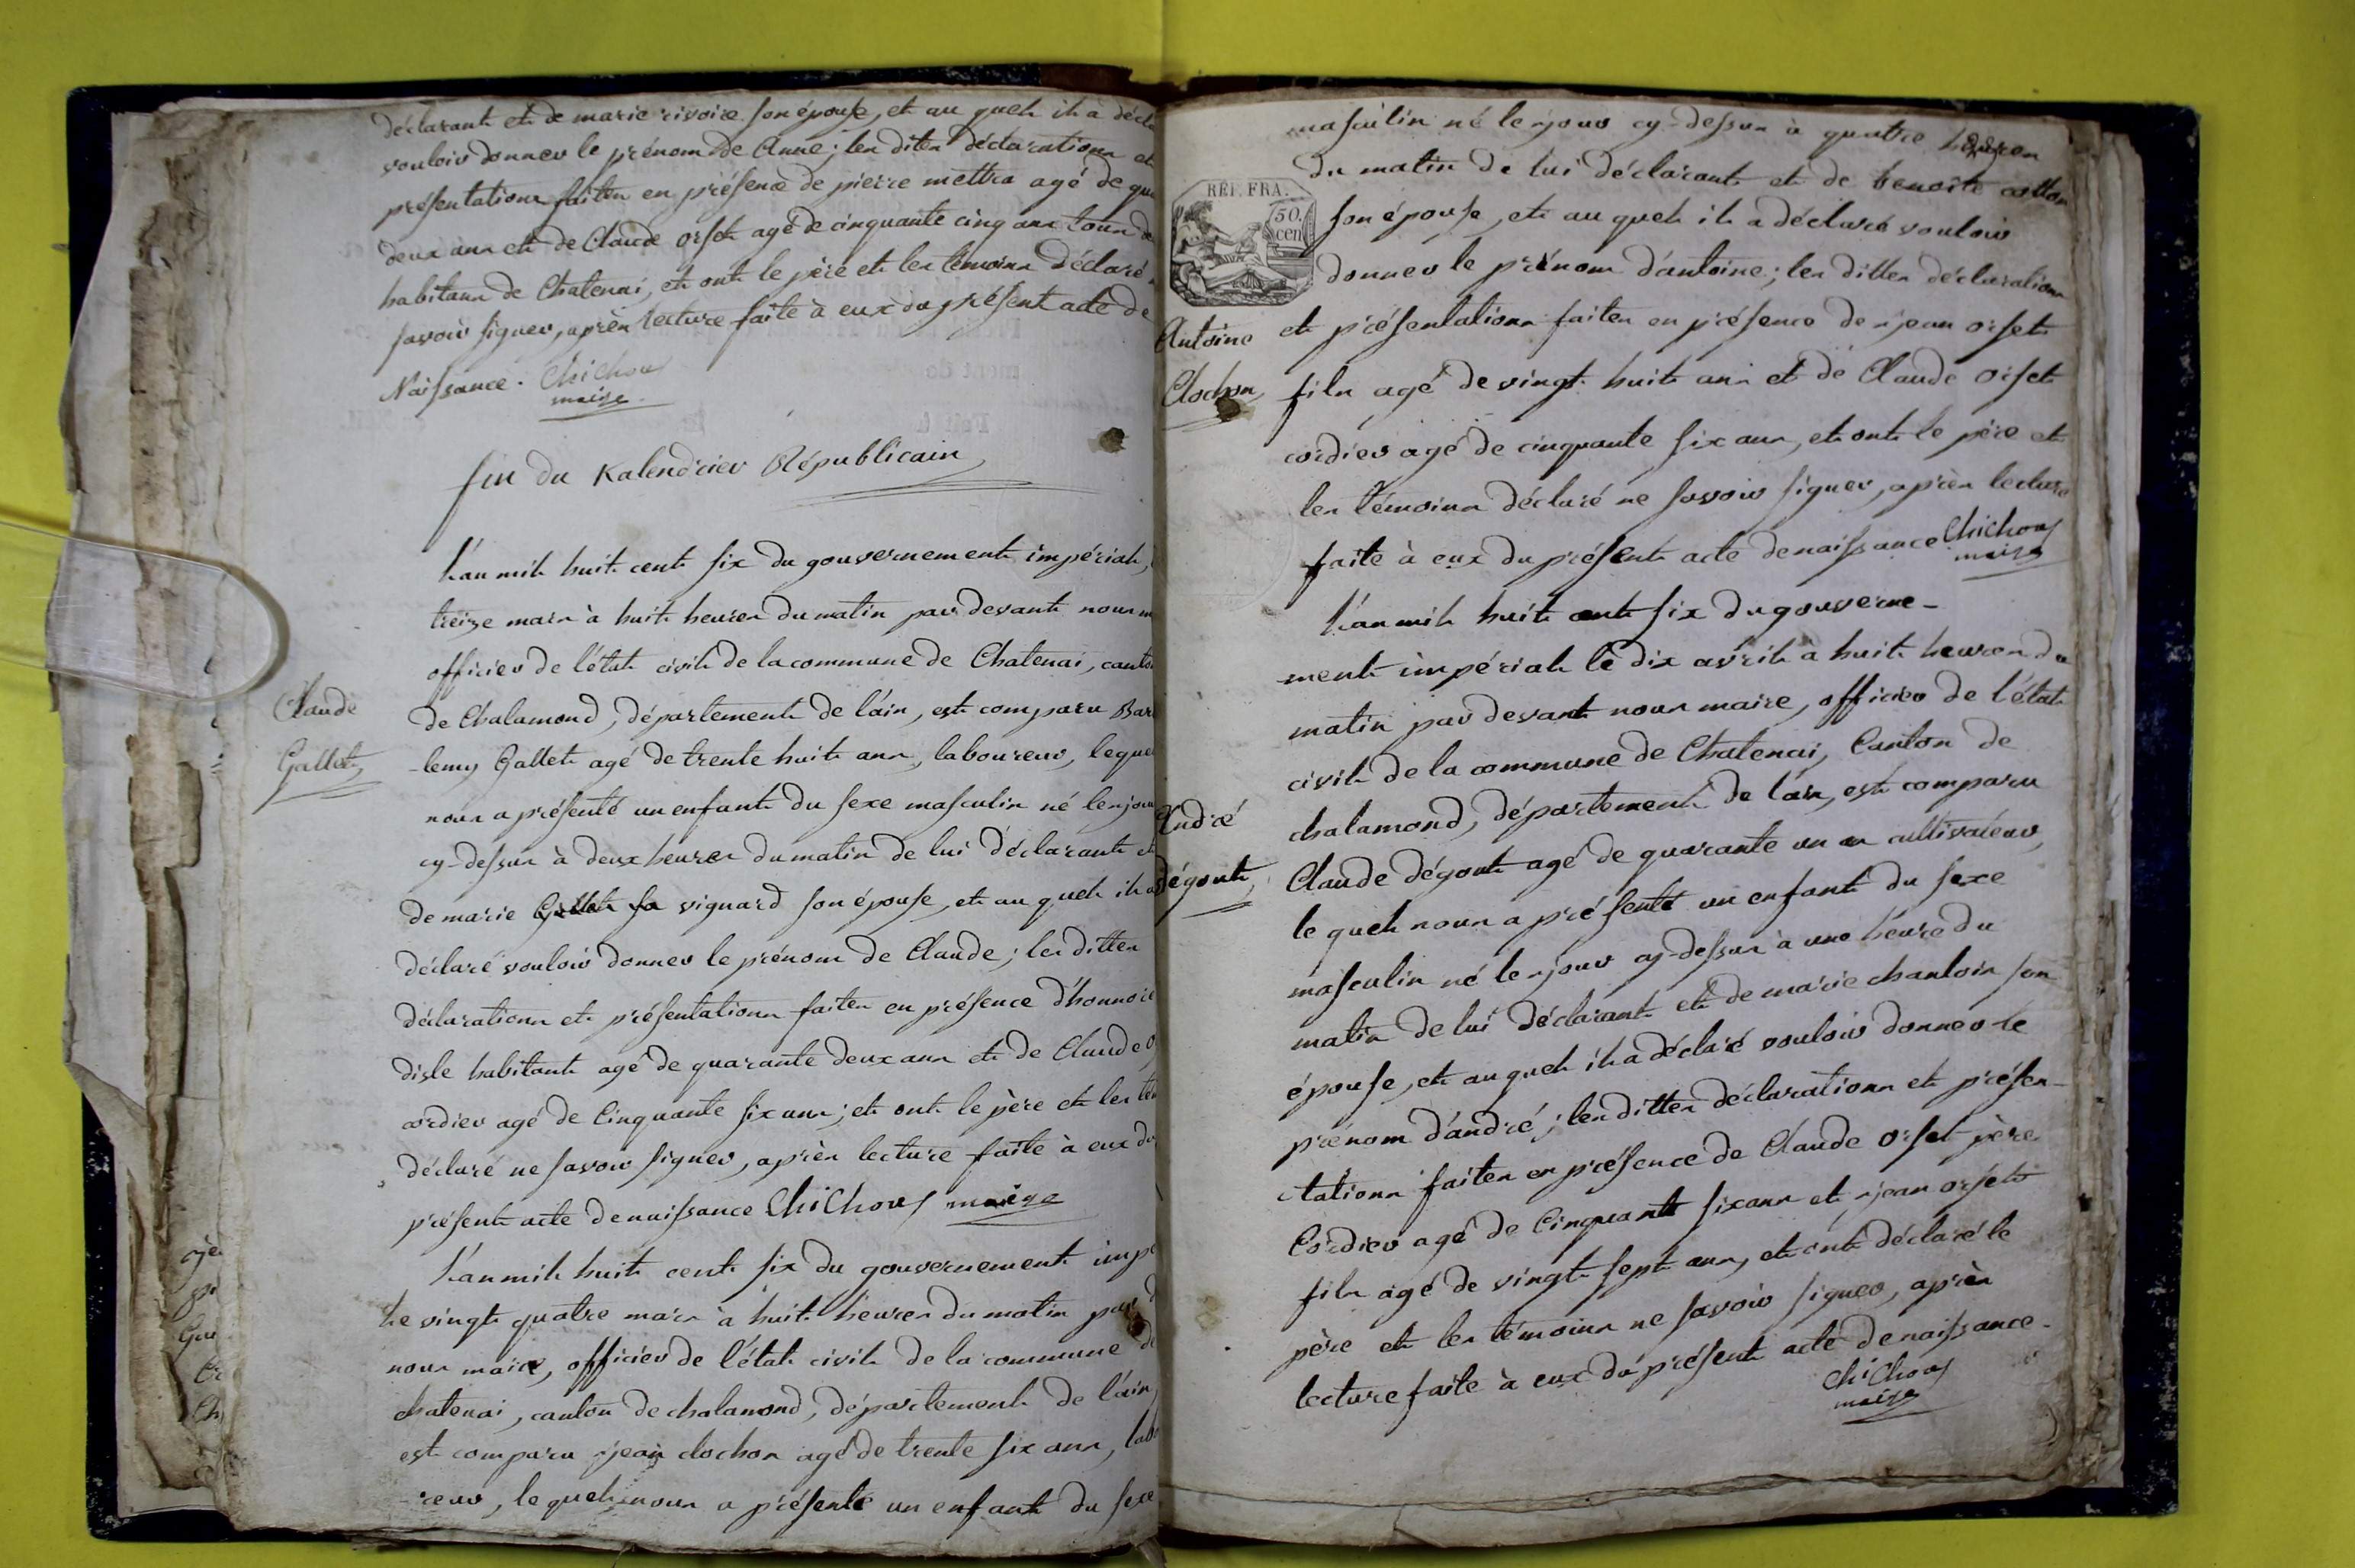 déclarant et de marie rivoire son épouse, et au quel il à décla
vouloir donner le prénom de Anne; les dites déclarations et
présentations faites en présence de pierre mettra agé de qua
deux ans et de Claude orset agé de cinquante cinq ans tous d
habitans de Chatenai, et ont le père et les temoins déclaré n
savoir signer, après lecture faite à eux du présent acte de
Naissance. Chichoux
maire
fin du Kalendrier Républicain
L'an mil huit cent six du gouvernement impérial, l
treize mars à huit heures du matin par devant nous m
officier de l'état civil de la commune de Chatenai, canton
de Chalamond, département de l'ain, est comparu Bart
Claude
Gallet
-lemy Gallet agé de trente huit ans, laboureur, lequel
nous a présenté un enfant du sexe masculin né les jour
cy-dessus à deux heures du matin de lui déclarant et
de marie vignard son épouse, et au quel il a
déclaré vouloir donner le prénom de Claude; les dittes
déclarations et présentations faites en présence d'honnoré
disle habitant agé de quarante deux ans et de Claude O
cordier agé de Cinquante six ans; et ont le père et les tém
déclaré ne savoir signer, après lecture faite à eux du
présent acte de naissance Chichoux maire
L'an mil huit cent six du gouvernement impé
Le vingt quatre mars à huit heures du matin par d
nous maire, officier de l'état civil de la commune de
chatenai, canton de chalamond, département de l'ain,
est comparu jean clochon agé de trente six ans, labo
-reur, le quel nous a présenté un enfant du sexe
masculin né les jour cy-dessus à quatre heures
du matin de lui déclarant et de benoite cotton
RÉP. FRA.
50.
cen
son épouse, et au quel il a déclaré vouloir
donner le prénom d'antoine; les dittes déclarations
Antoine
Clochon
et présentations faites en présence de jean orset
fils agé de vingt huit ans et de Claude orset
cordier agé de cinquante six ans, et ont le père et
les témoins déclaré ne savoir signer, après lecture
faite à eux du présent acte de naissance Chichoux
maire
L'an mil huit cent six du gouverne-
ment impérial le dix avril à huit heures du
matin par devant nous maire, officier de l'état
civil de la commune de Chatenai, Canton de
chalamond, département de l'ain, est comparu
André
dégout
Claude dégout agé de quarante un an cultivateur,
le quel nous a présenté un enfant du sexe
masculin né les jour cy-dessus à une heure du
matin de lui déclarant et de marie chanloin son
épouse, et au quel il a déclaré vouloir donner le
prénom d'andré; les dittes déclarations et présen-
tations faites en présence de Claude orset père
Cordier agé de Cinquante six ans et jean orset
fils agé de vingt sept ans, et ont déclaré le
père et les témoins ne savoir signer, après
lecture faite à eux du présent acte de naissance.
Chichoux
maire